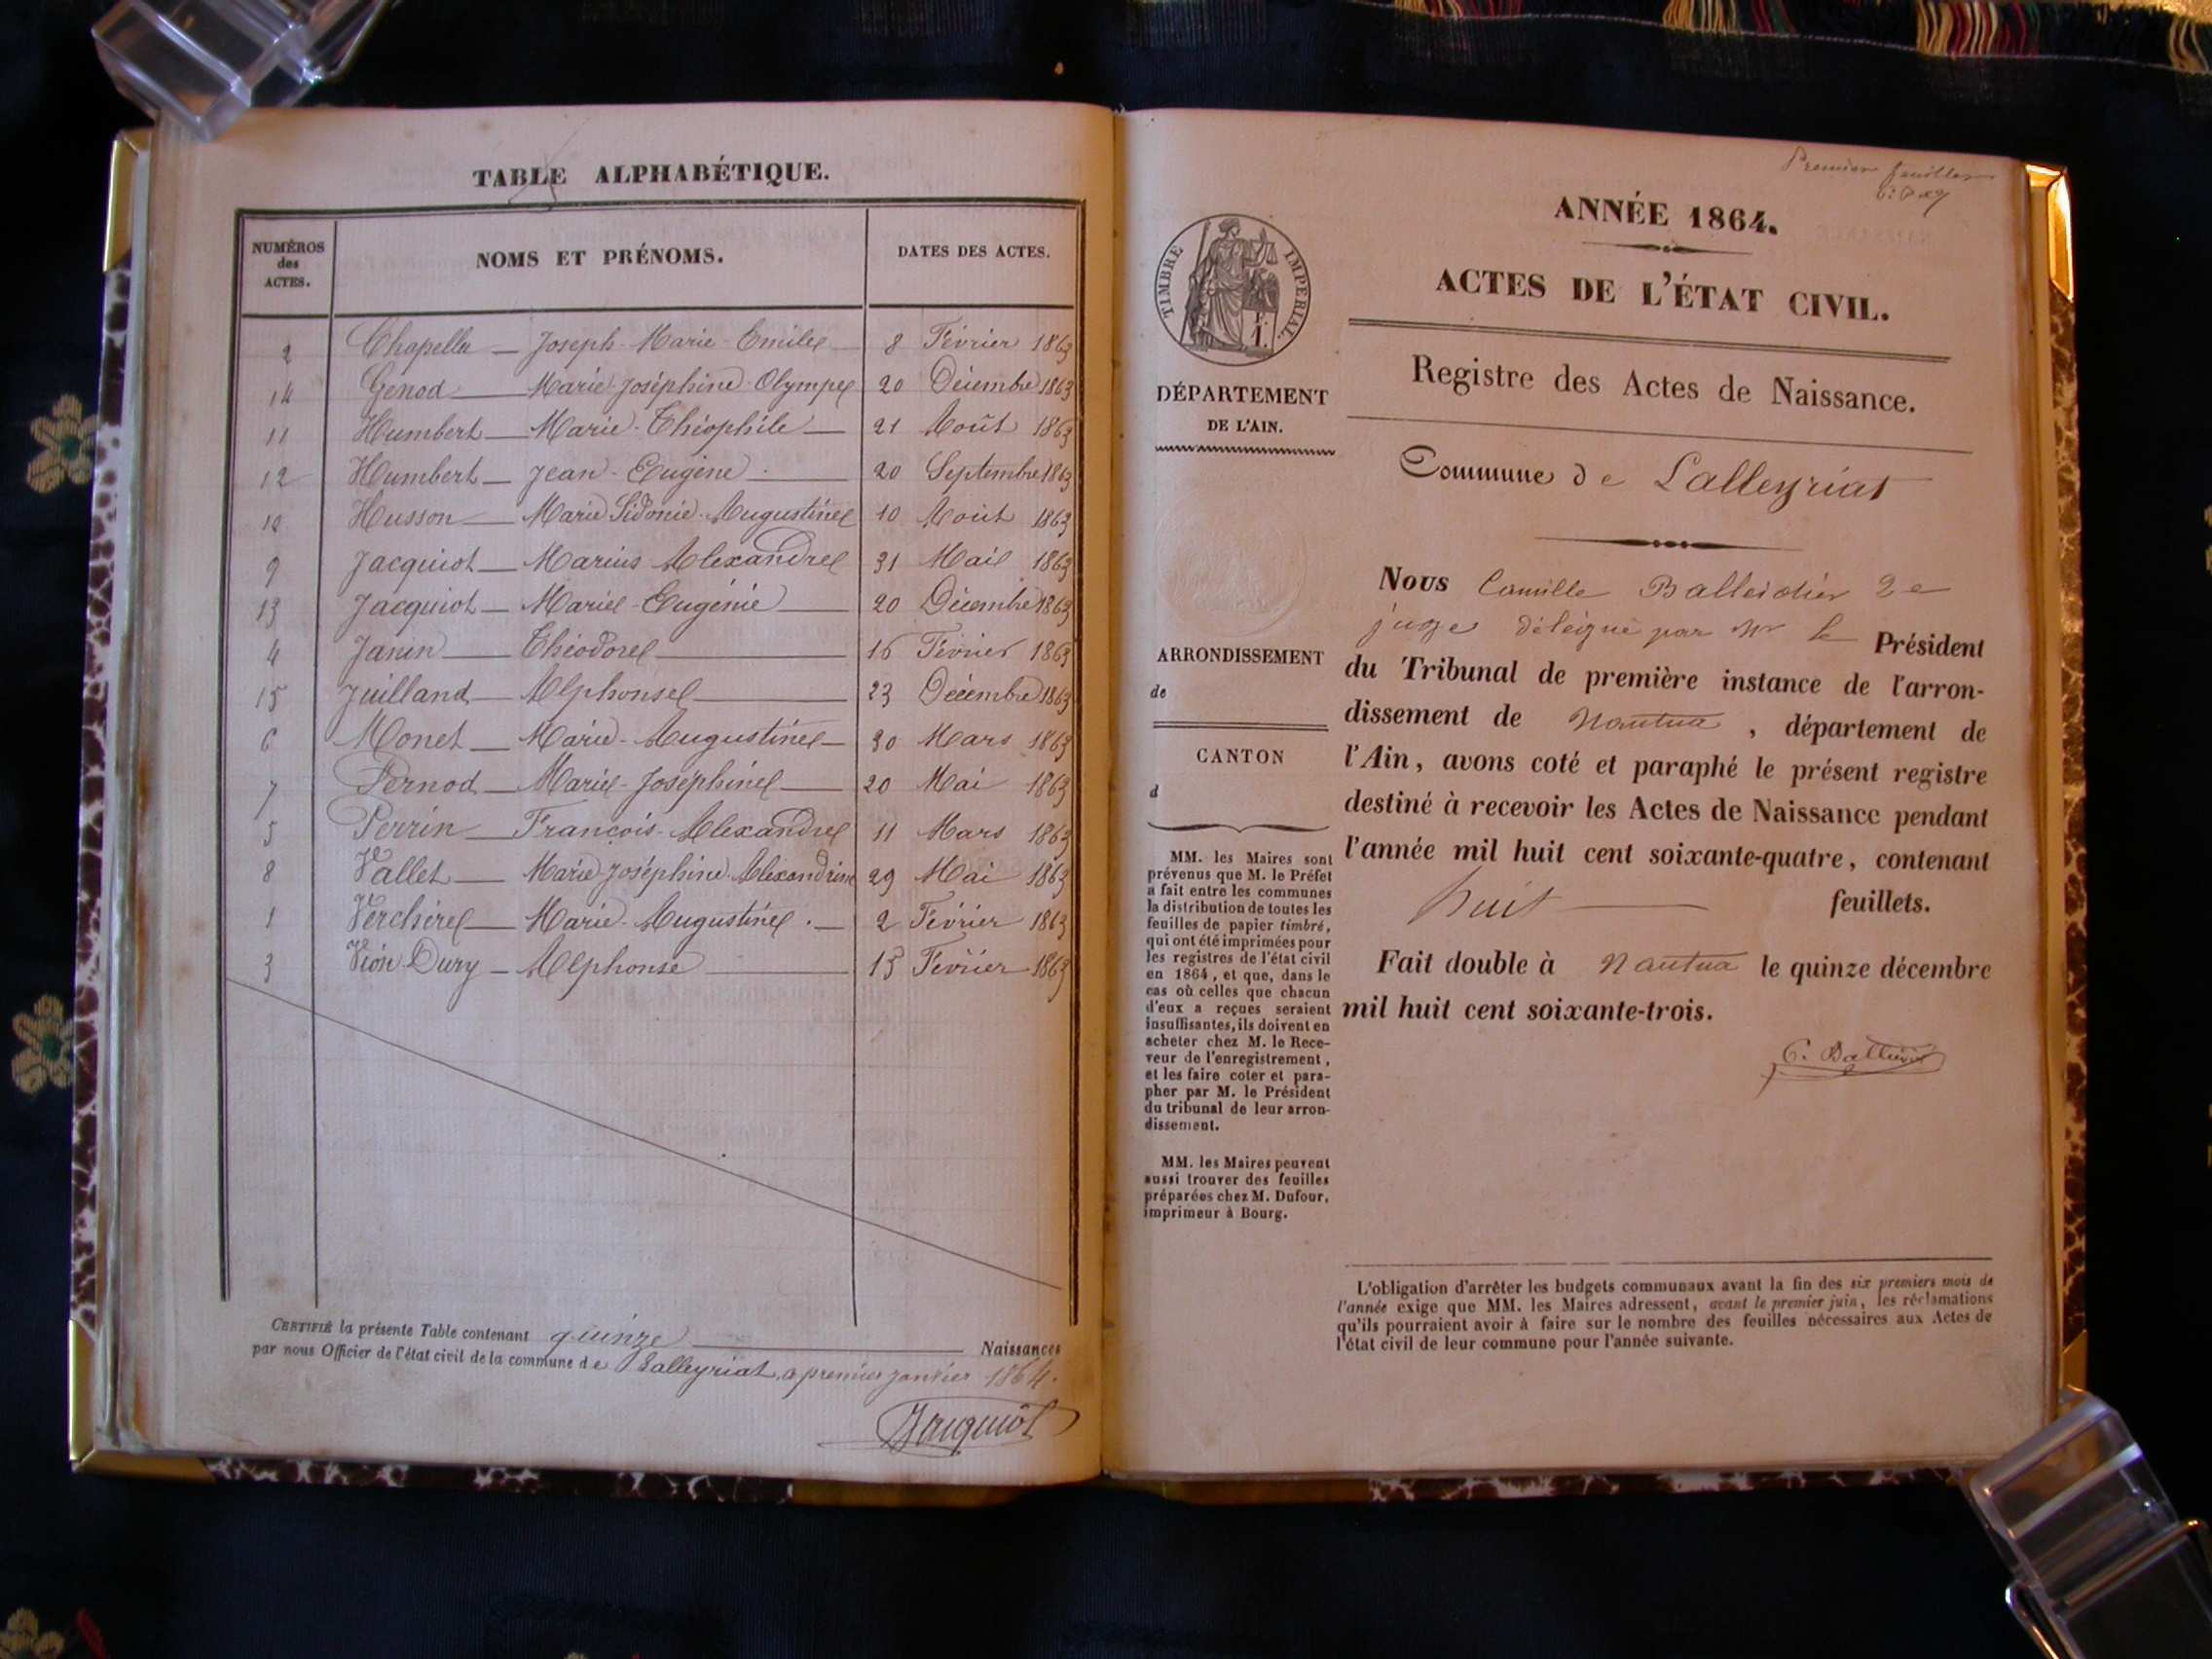 TABLE ALPHABÉTIQUE.
NUMÉROS des ACTES.
NOMS ET PRÉNOMS.
DATES DES ACTES.
2 Chapelle — Joseph-Marie-Emile 8 Février 1863
14 Genod — Marie-Joséphine-Olympe 20 Décembre 1863
11 Humbert — Marie-Théophile 21 Août 1863
12 Humbert — Jean-Eugène 20 Septembre 1863
10 Husson — Marie Sidonie-Augustine 10 Août 1863
9 Jacquiot — Marius Alexandre 31 Mai 1863
13 Jacquiot — Marie-Eugénie 20 Décembre 1863
4 Janin — Théodore 16 Février 1863
15 Juilland — Alphonse 23 Décembre 1863
6 Monet — Marie-Augustine 30 Mars 1863
7 Pernod — Marie-Joséphine 20 Mai 1863
5 Perrin — François-Alexandre 11 Mars 1863
8 Vallet — Marie-Joséphine-Alexandrine 29 Mai 1863
1 Verchère — Marie-Augustine 2 Février 1863
3 Vion-Dury — Alphonse 15 Février 1863
CERTIFIÉ la présente Table contenant quinze Naissances
par nous Officier de l'état civil de la commune de Lalleyriat, a premier janvier 1864.
Jacquiot
Premier feuillet
TIMBRE IMPÉRIAL.
ANNÉE 1864.
ACTES DE L'ÉTAT CIVIL.
Registre des Actes de Naissance.
Commune de Lalleyriat
DÉPARTEMENT
DE L'AIN.
ARRONDISSEMENT
de
CANTON
d
MM. les Maires sont
prévenus que M. le Préfet
a fait entre les communes
la distribution de toutes les
feuilles de papier timbré,
qui ont été imprimées pour
les registres de l'état civil
en 1864, et que, dans le
cas où celles que chacun
d'eux a reçues seraient
insuffisantes, ils doivent en
acheter chez M. le Rece-
veur de l'enregistrement,
et les faire coter et para-
pher par M. le Président
du tribunal de leur arron-
dissement.
MM. les Maires peuvent
aussi trouver des feuilles
préparées chez M. Dufour,
imprimeur à Bourg.
Nous Camille Balleidier 2e
juge délégué par Mr le Président
du Tribunal de première instance de l'arron-
dissement de Nantua, département de
l'Ain, avons coté et paraphé le présent registre
destiné à recevoir les Actes de Naissance pendant
l'année mil huit cent soixante-quatre, contenant
huit feuillets.
Fait double à Nantua le quinze décembre
mil huit cent soixante-trois.
L'obligation d'arrêter les budgets communaux avant la fin des six premiers mois de
l'année exige que MM. les Maires adressent, avant le premier juin, les réclamations
qu'ils pourraient avoir à faire sur le nombre des feuilles nécessaires aux Actes de
l'état civil de leur commune pour l'année suivante.